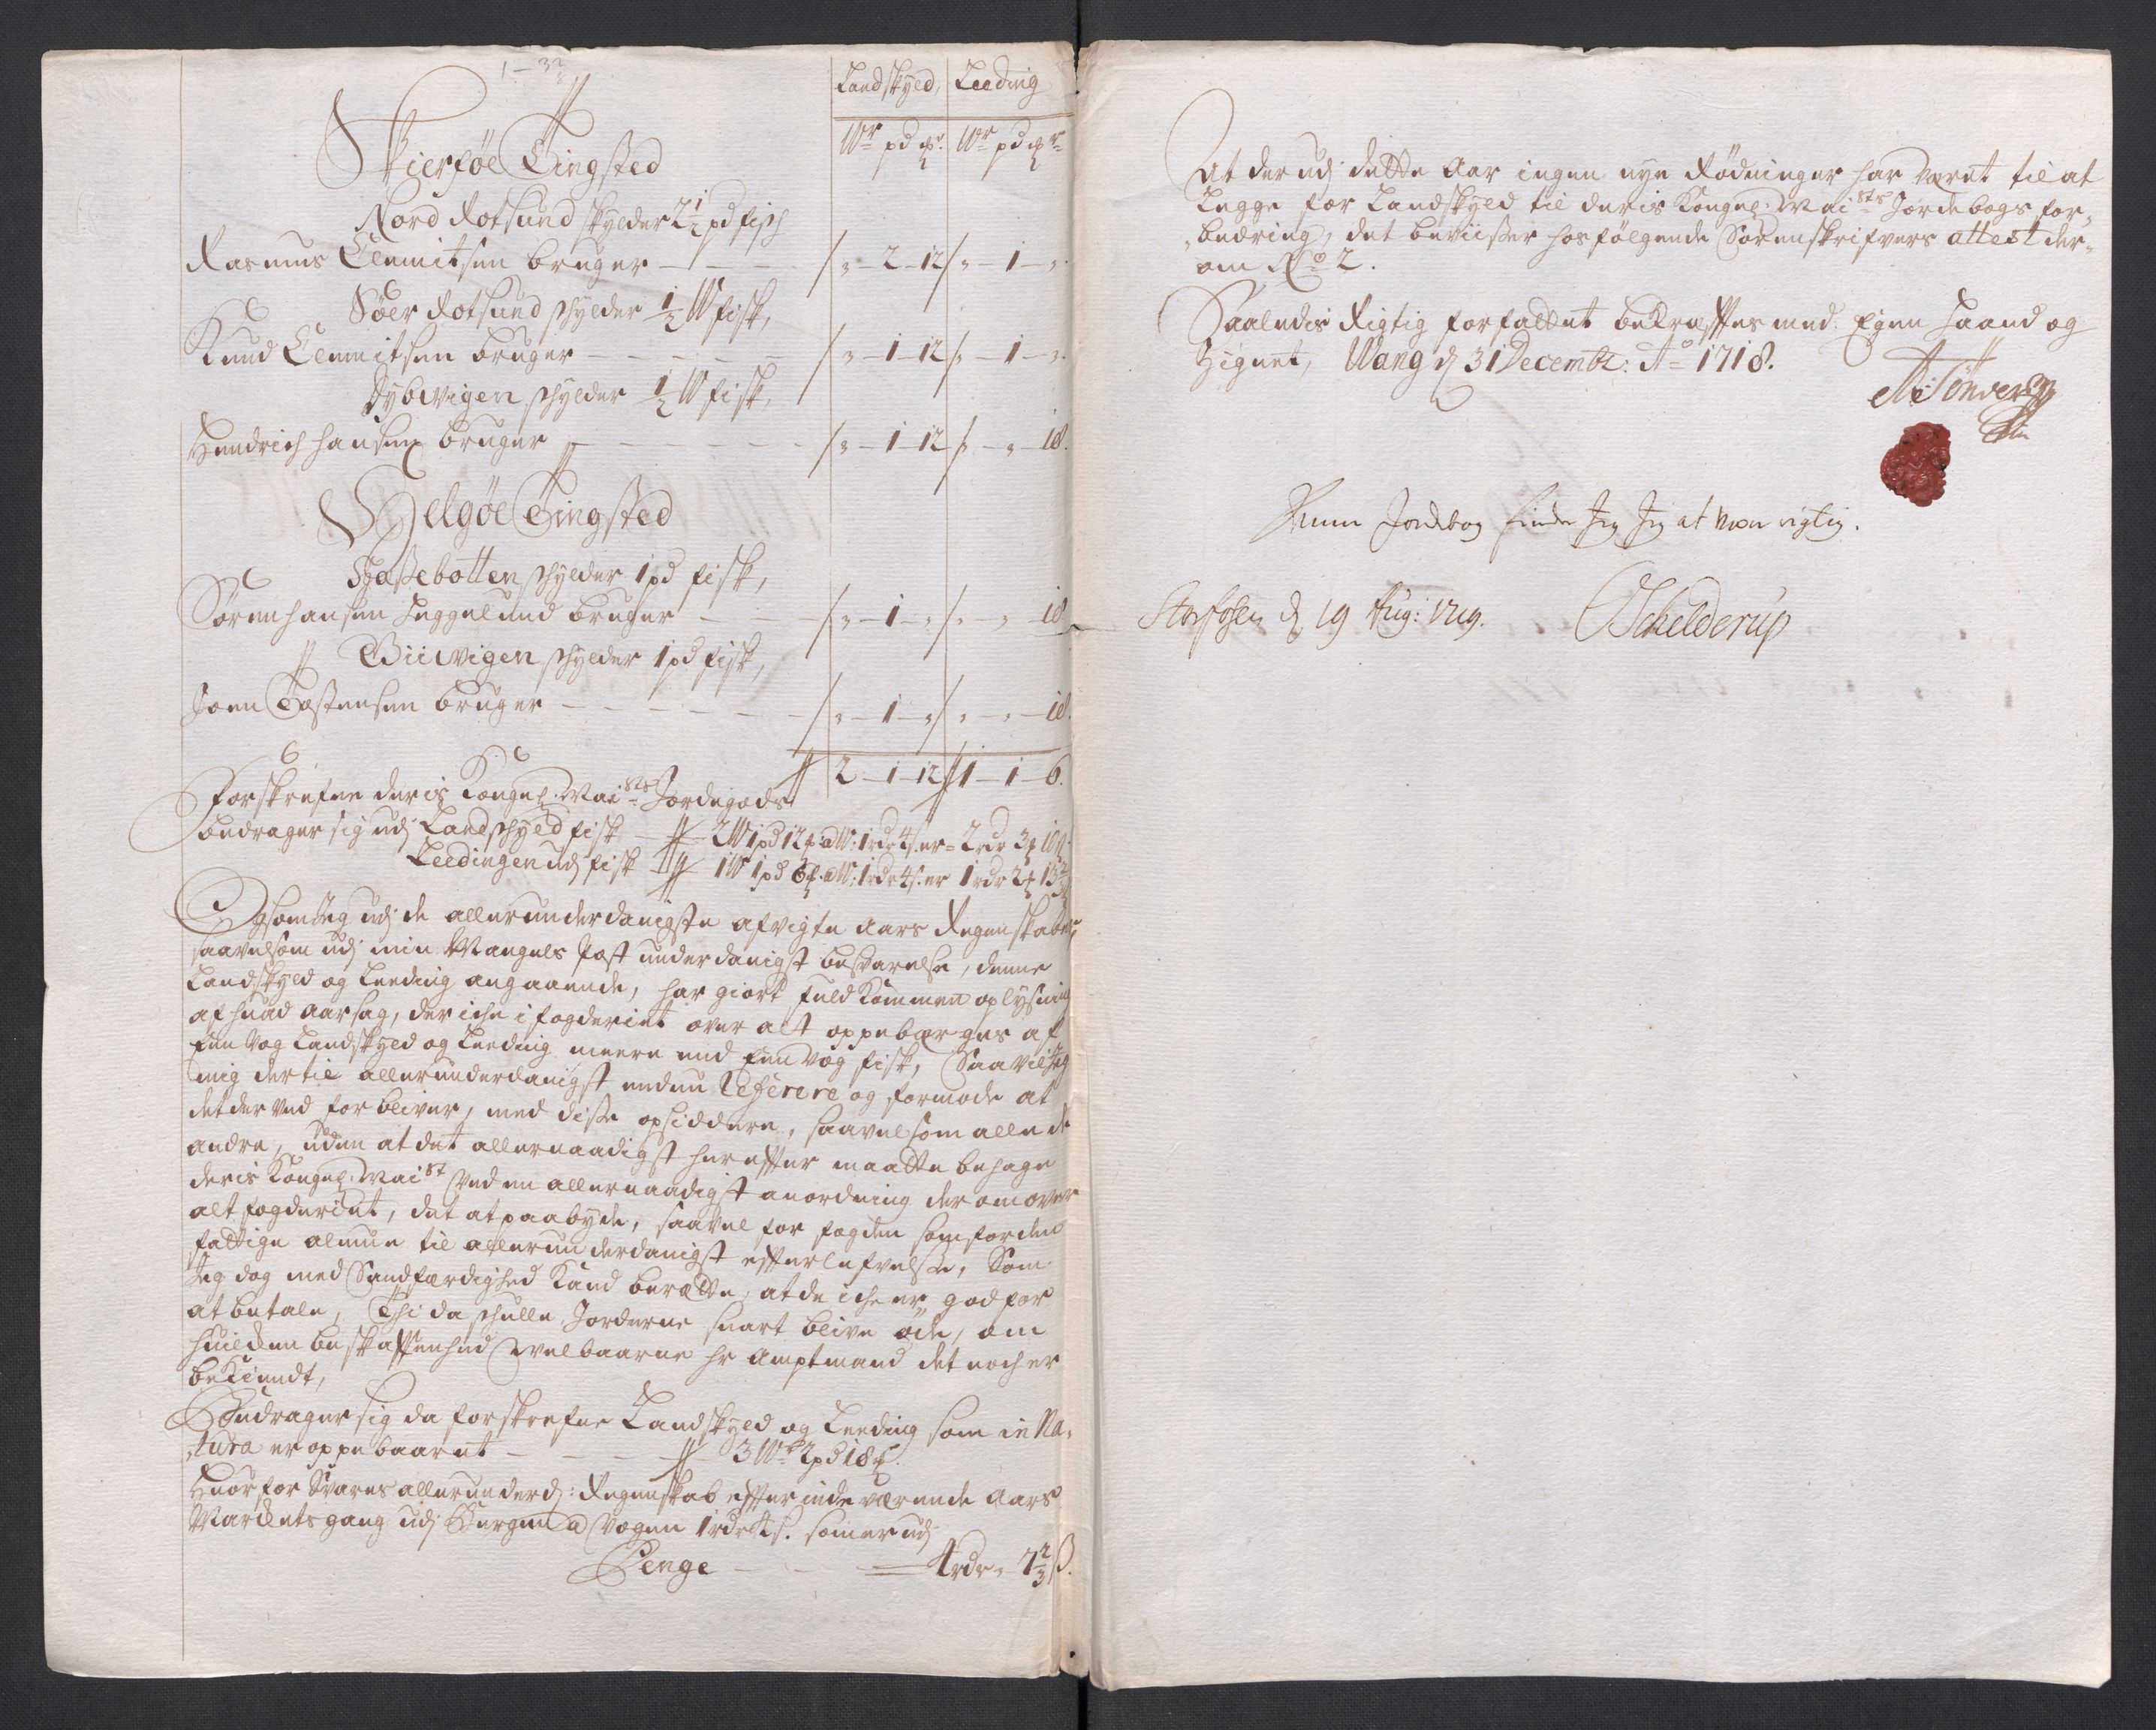 1 – 3 2/3
Landskyld, Leeding
Wr pd mr Wr pd mr
Skierføe Tingsted
Nord Rotsund skylder 2½ pd fisch
Rasmus Clemitsen bruger – – – / „ – 2 – 12 / „ – 1 – „
Søer Rotsund schylder ½ W fisk,
Knud Clemitsen bruger – – – – / „ – 1 – 12 / „ – 1 – „
Dybwigen schylder ½ W fisk,
Hendrich hansen bruger – – – – / „ – 1 – 12 / „ – „ – 18.
Helgøe Tingsted
Schaßebotten schylder 1 pd fisk,
Søren hansen Heggelund bruger – – / „ – 1 – „ / „ – „ – 18
Biiwigen schylder 1 pd fisk,
Joen Tostensen bruger – – – – – / „ – 1 – „ / „ – „ – 18.
2 – 1 – 12 // 1 – 1 – 6.
Forskrefne deris Kongel: Maists Jordegods
bedrager sig udj Landschyld fisk – 2 W 1 pd 12 mr a W: 1 rdr 4 s. er = 2 rdr 3 mr 10 s.
Leedingen udj fisk – 1 W 1 pd 6 mr a W: 1 rdr 4 s. er 1 rdr 2 mr 13 2/3
Og som Jeg udj de allerunderdanigste afvigte aars Regenskaber,
saavelsom udj min Mangels Post underdanigst besvarelse, denne
Landskyld og Leeding angaaende, har giort fuldkommen oplysning
af huad aarsag, der iche i fogderiet over alt oppebærges af
Een Vog Landskyld og Leeding meere end Een Vog fisk, Saa vil Jeg
mig dertil allerunderdanigst endnu Referere og formode at
det der ved forbliver, med disse opsiddere, saavelsom alle de
andre, uden at det allernaadigst herefter maatte behage
deris Kongel: Maist Ved en allernaadigst anordning derom over
alt fogderiet, det at paabyde, saavel for fogden som for den
fattige almue til allerunderdanigst efterlefvelse, Som
Jeg dog med Sandfærdighed kand berætte, at de iche er god for
at betale, Thi da schulle Jorderne snart blive øde, om
huilcken beskaffenhed Welbaarne hr Amptmand det noch er
bekiendt,
Bedrager sig da forskrefne Landskyld og Leeding som in Na-
tura er oppebaaret – – – – 3 Wr 2 pd 18 mr.
Huorfor Svares allerunderd: Regenskab efter indeværende aars
Marckets gang udj Bergen a Vogen 1 rdr 4 s. som er udj
Penge – – – 4 rdr „ 7 2/3 ß.
At der udj dette Aar ingen nye Rødninger har været til at
Legge for Landskyld til deris Kongel: Maists Jordebogs for-
bedring, det beviißer hosfølgende Sorenskrifvers attest der-
om No 2.
Saaledis Rigtig forfattet bekræftes med Egen Haand og
Zignet, Wang d 31 Decembr: Ao 1718.
A: Tønder
Denne Jordebog finder Jeg at være rigtig.
Storfosen d 19 Aug: 1719. OSchelderup